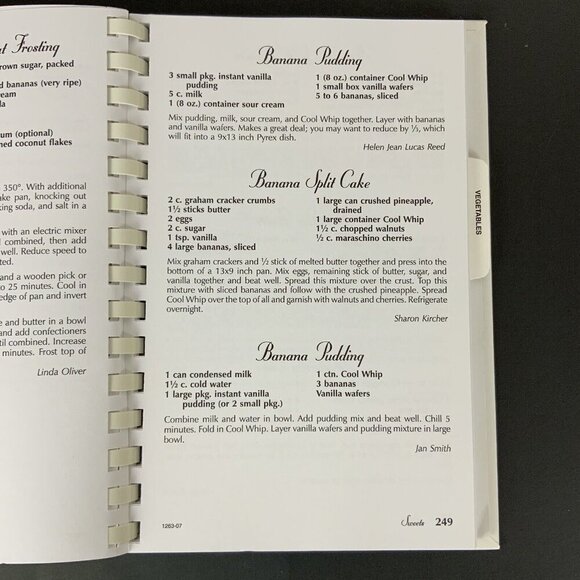 t Frosting
rown sugar, packed
d bananas (very ripe)
ream
la
um (optional)
ned coconut flakes
350°. With additional
ke pan, knocking out
king soda, and salt in a
with an electric mixer
combined, then add
well. Reduce speed to
ted.
and a wooden pick or
to 25 minutes. Cool in
edge of pan and invert
e and butter in a bowl
and add confectioners
til combined. Increase
minutes. Frost top of
Linda Oliver
Banana Pudding
3 small pkg. instant vanilla
pudding
5 c. milk
1 (8 oz.) container sour cream
1 (8 oz.) container Cool Whip
1 small box vanilla wafers
5 to 6 bananas, sliced
Mix pudding, milk, sour cream, and Cool Whip together. Layer with bananas
and vanilla wafers. Makes a great deal; you may want to reduce by ⅓, which
will fit into a 9x13 inch Pyrex dish.
Helen Jean Lucas Reed
Banana Split Cake
2 c. graham cracker crumbs
1½ sticks butter
2 eggs
2 c. sugar
1 tsp. vanilla
4 large bananas, sliced
1 large can crushed pineapple,
drained
1 large container Cool Whip
1½ c. chopped walnuts
½ c. maraschino cherries
Mix graham crackers and ½ stick of melted butter together and press into the
bottom of a 13x9 inch pan. Mix eggs, remaining stick of butter, sugar, and
vanilla together and beat well. Spread this mixture over the crust. Top this
mixture with sliced bananas and follow with the crushed pineapple. Spread
Cool Whip over the top of all and garnish with walnuts and cherries. Refrigerate
overnight.
Sharon Kircher
Banana Pudding
1 can condensed milk
1½ c. cold water
1 large pkg. instant vanilla
pudding (or 2 small pkg.)
1 ctn. Cool Whip
3 bananas
Vanilla wafers
Combine milk and water in bowl. Add pudding mix and beat well. Chill 5
minutes. Fold in Cool Whip. Layer vanilla wafers and pudding mixture in large
bowl.
Jan Smith
1263-07
Sweets 249
VEGETABLES